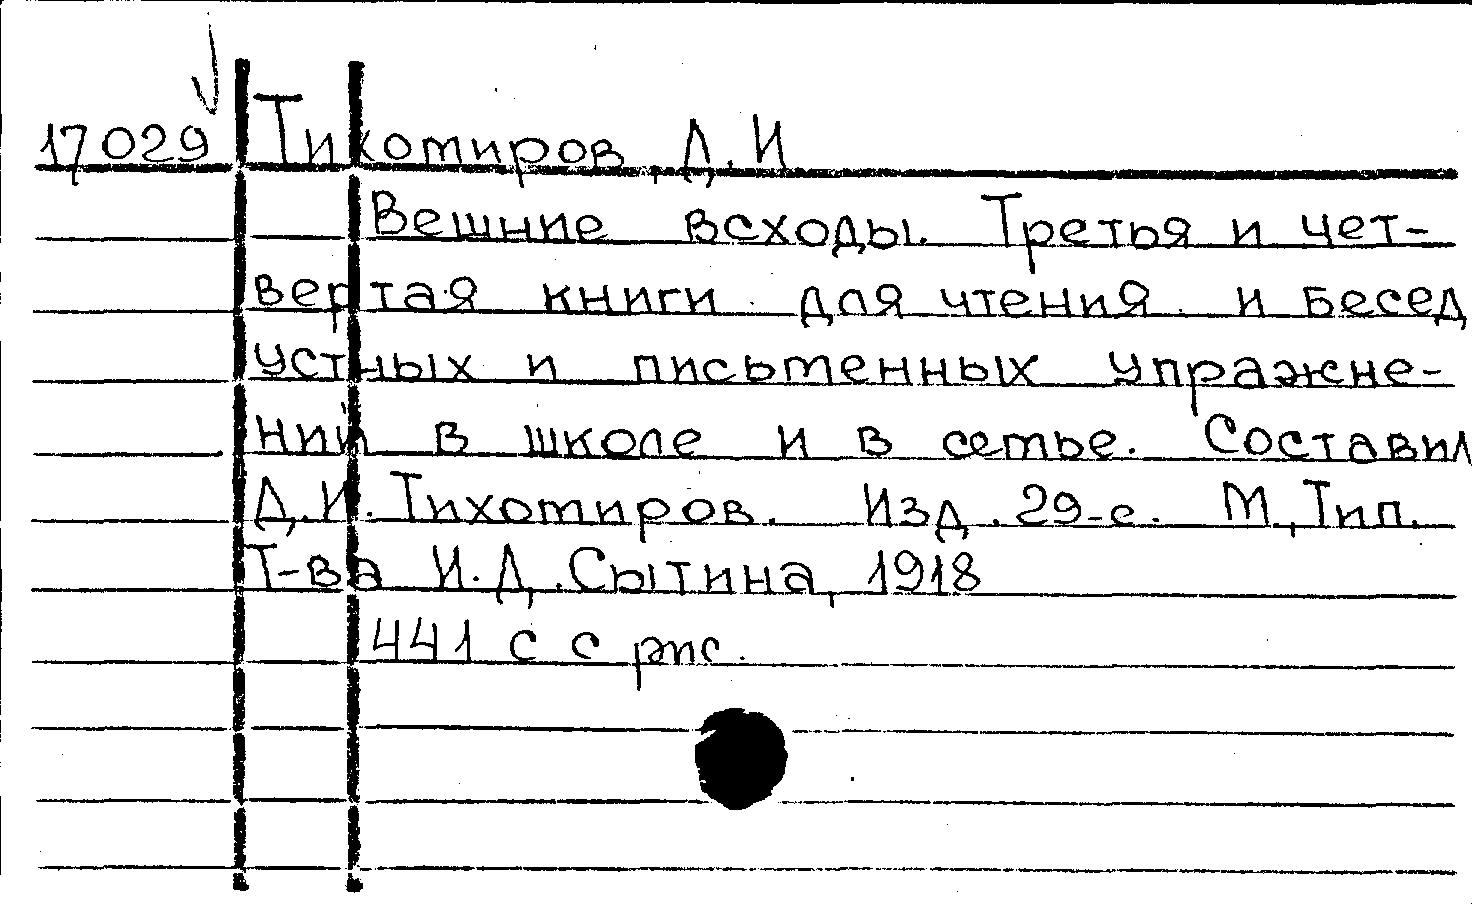 17029 Тихомиров, Д.И
Вешние всходы. Третья и чет-
вертая книги для чтения и бесед
устных и письменных упражне-
ний в школе и в семье. Составил
Д.И. Тихомиров. Изд. 29-е. М., Тип.
Т-ва И.Д. Сытина, 1918
441 с с рис.